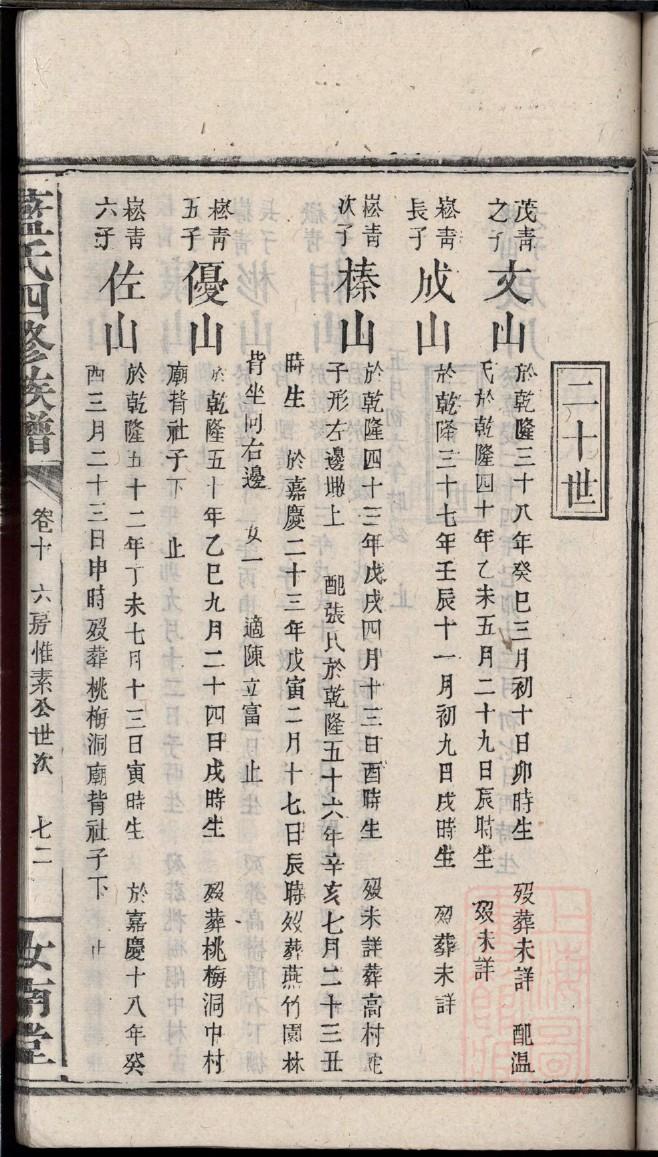 二十世
茂青之子
文山
於乾隆三十八年癸巳三月初十日卯時生 歿葬未詳 配温
氏於乾隆四十年乙未五月二十九日辰時生 歿未詳
崧青長子
成山
於乾隆三十七年壬辰十一月初九日戌時生 歿葬未詳
崧青次子
榛山
於乾隆四十三年戊戌四月十三日酉時生 歿未詳葬高村
子形左邊墈上 配張氏於乾隆五十六年辛亥七月二十三丑
時生 於嘉慶二十三年戊寅二月十七日辰時歿葬燕竹園林
背坐向右邊 女一 適陳立富 止
崧青五子
優山
於乾隆五十年乙巳九月二十四日戌時生 歿葬桃梅洞中村
廟背社子下 止
崧青六子
佐山
於乾隆五十二年丁未七月十三日寅時生 於嘉慶十八年癸
酉三月二十三日申時歿葬桃梅洞廟背社子下 止
氏四修族譜
卷十 六房惟素公世次 七二
汝南堂